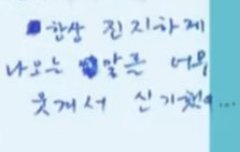 항상 진지하게
나오는 말은 너무
웃겨서 신기했어...